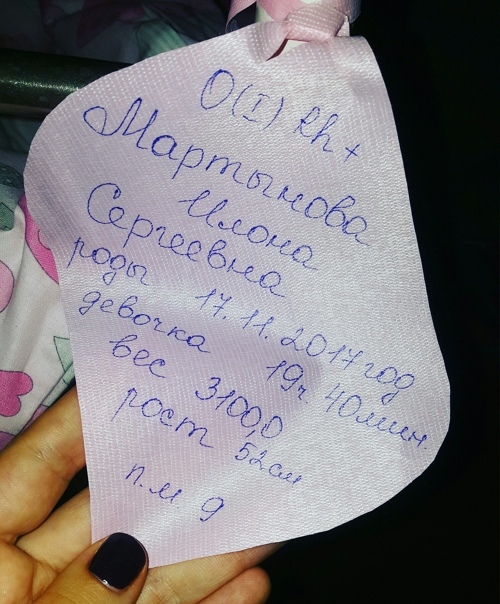 O(I) Rh+
Мартынова
Илона
Сергеевна
роды 17.11.2017 год
девочка 19ч. 40мин.
вес 3100,0
рост 52см
п.м. 9